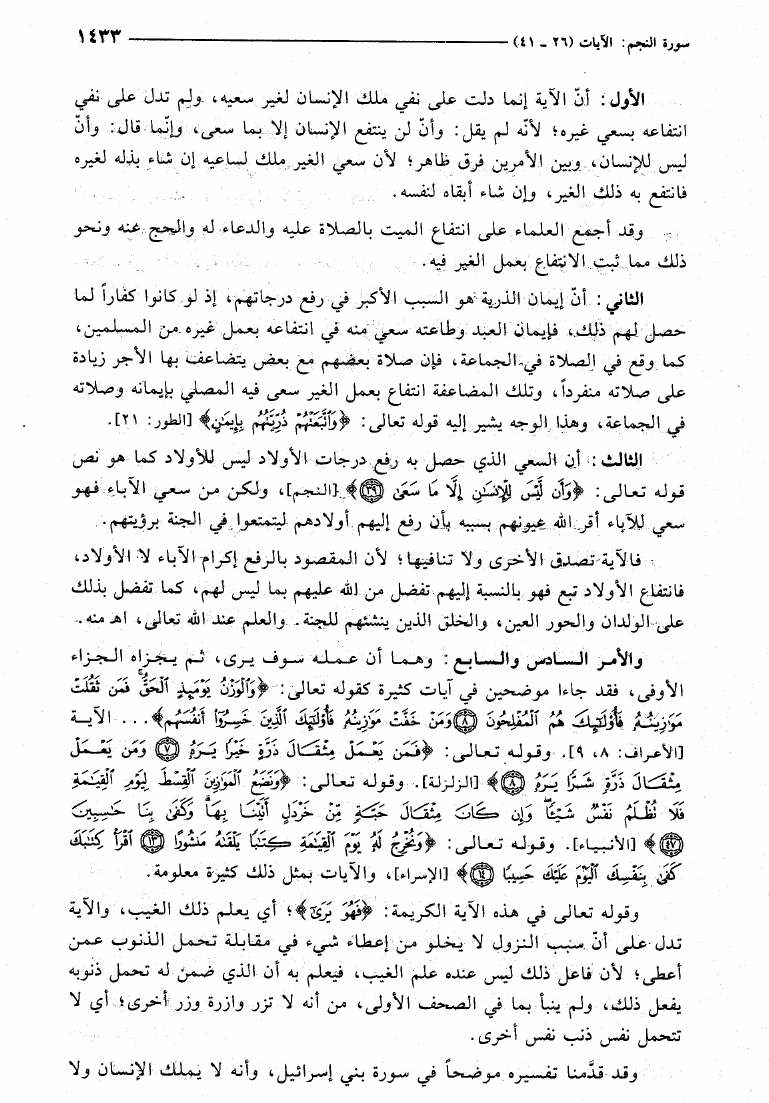 سورة النجم: الآيات (٢٦ - ٤١) ١٤٣٣
الأول: أنّ الآية إنما دلت على نفي ملك الإنسان لغير سعيه، ولم تدل على نفي
انتفاعه بسعي غيره؛ لأنّه لم يقل: وأنّ لن ينتفع الإنسان إلا بما سعى، وإنّما قال: وأنّ
ليس للإنسان، وبين الأمرين فرق ظاهر؛ لأن سعي الغير ملك لساعيه إن شاء بذله لغيره
فانتفع به ذلك الغير، وإن شاء أبقاه لنفسه.
وقد أجمع العلماء على انتفاع الميت بالصلاة عليه والدعاء له والحج عنه ونحو
ذلك مما ثبت الانتفاع بعمل الغير فيه.
الثاني: أنّ إيمان الذرية هو السبب الأكبر في رفع درجاتهم، إذ لو كانوا كفاراً لما
حصل لهم ذلك، فإيمان العبد وطاعته سعي منه في انتفاعه بعمل غيره من المسلمين،
كما وقع في الصلاة في الجماعة، فإن صلاة بعضهم مع بعض يتضاعف بها الأجر زيادة
على صلاته منفرداً، وتلك المضاعفة انتفاع بعمل الغير سعى فيه المصلي بإيمانه وصلاته
في الجماعة، وهذا الوجه يشير إليه قوله تعالى: ﴿وَٱتَّبَعَتْهُمْ ذُرِّيَّتُهُم بِإِيمَٰنٍ﴾ [الطور: ٢١].
الثالث: أن السعي الذي حصل به رفع درجات الأولاد ليس للأولاد كما هو نص
قوله تعالى: ﴿وَأَن لَّيْسَ لِلْإِنسَٰنِ إِلَّا مَا سَعَىٰ ٣٩﴾ [النجم]، ولكن من سعي الآباء فهو
سعي للآباء أقر الله عيونهم بسببه بأن رفع إليهم أولادهم ليتمتعوا في الجنة برؤيتهم.
فالآية تصدق الأخرى ولا تنافيها؛ لأن المقصود بالرفع إكرام الآباء لا الأولاد،
فانتفاع الأولاد تبع فهو بالنسبة إليهم تفضل من الله عليهم بما ليس لهم، كما تفضل بذلك
على الولدان والحور العين، والخلق الذين ينشئهم للجنة. والعلم عند الله تعالى، اهـ منه.
والأمر السادس والسابع: وهما أن عمله سوف يرى، ثم يجزاه الجزاء
الأوفى، فقد جاءا موضحين في آيات كثيرة كقوله تعالى: ﴿وَٱلْوَزْنُ يَوْمَئِذٍ ٱلْحَقُّ فَمَن ثَقُلَتْ
مَوَٰزِينُهُۥ فَأُوْلَٰٓئِكَ هُمُ ٱلْمُفْلِحُونَ ٨ وَمَنْ خَفَّتْ مَوَٰزِينُهُۥ فَأُوْلَٰٓئِكَ ٱلَّذِينَ خَسِرُوٓاْ أَنفُسَهُم﴾... الآية
[الأعراف: ٨، ٩]. وقوله تعالى: ﴿فَمَن يَعْمَلْ مِثْقَالَ ذَرَّةٍ خَيْرًا يَرَهُۥ ٧ وَمَن يَعْمَلْ
مِثْقَالَ ذَرَّةٍ شَرًّا يَرَهُۥ ٨﴾ [الزلزلة]. وقوله تعالى: ﴿وَنَضَعُ ٱلْمَوَٰزِينَ ٱلْقِسْطَ لِيَوْمِ ٱلْقِيَٰمَةِ
فَلَا تُظْلَمُ نَفْسٌ شَيْـًٔا وَإِن كَانَ مِثْقَالَ حَبَّةٍ مِّنْ خَرْدَلٍ أَتَيْنَا بِهَا وَكَفَىٰ بِنَا حَٰسِبِينَ
٤٧﴾ [الأنبياء]. وقوله تعالى: ﴿وَنُخْرِجُ لَهُۥ يَوْمَ ٱلْقِيَٰمَةِ كِتَٰبًا يَلْقَىٰهُ مَنشُورًا ١٣ ٱقْرَأْ كِتَٰبَكَ
كَفَىٰ بِنَفْسِكَ ٱلْيَوْمَ عَلَيْكَ حَسِيبًا ١٤﴾ [الإسراء]، والآيات بمثل ذلك كثيرة معلومة.
وقوله تعالى في هذه الآية الكريمة: ﴿فَهُوَ يَرَىٰٓ﴾؛ أي يعلم ذلك الغيب، والآية
تدل على أنّ سبب النزول لا يخلو من إعطاء شيء في مقابلة تحمل الذنوب عمن
أعطى؛ لأن فاعل ذلك ليس عنده علم الغيب، فيعلم به أن الذي ضمن له تحمل ذنوبه
يفعل ذلك، ولم ينبأ بما في الصحف الأولى، من أنه لا تزر وازرة وزر أخرى؛ أي لا
تتحمل نفس ذنب نفس أخرى.
وقد قدَّمنا تفسيره موضحاً في سورة بني إسرائيل، وأنه لا يملك الإنسان ولا